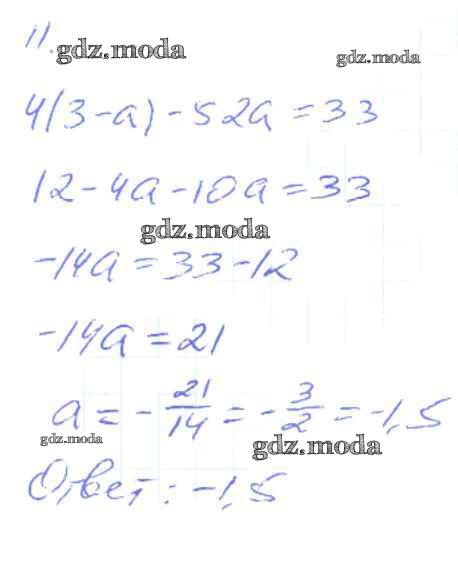 11. gdz.moda gdz.moda
4(3-a)-52a=33
12-4a-10a=33
gdz.moda
-14a=33-12
-14a=21
a = - 21/14 = - 3/2 = -1,5
gdz.moda gdz.moda
Ответ: -1,5